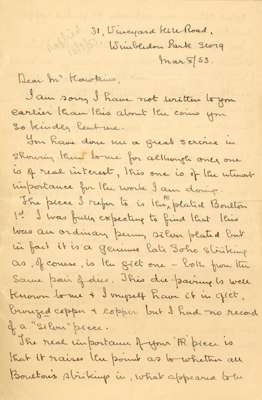 31, Vineyard Hill Road,
Wimbledon Park SW19
Mar 8/53.
Dear Mr Hawkins,
I am sorry I have not written to you
earlier than this about the coins you
so kindly lent me.
You have done me a great service in
showing them to me for although only one
is of real interest, this one is of the utmost
importance for the work I am doing.
The piece I refer to is the plated Boulton
1d. I was fully expecting to find that this
was an ordinary penny silver plated but
in fact it is a genuine late Soho striking
as, of course, is the gilt one - both from the
same pair of dies. This die-pairing is well
known to me & I myself have it in gilt,
bronzed copper & copper but I had no record
of a "silver" piece.
The real importance of your "R" piece is
that it raises the point as to whether all
Boulton's strikings in, what appeared to be